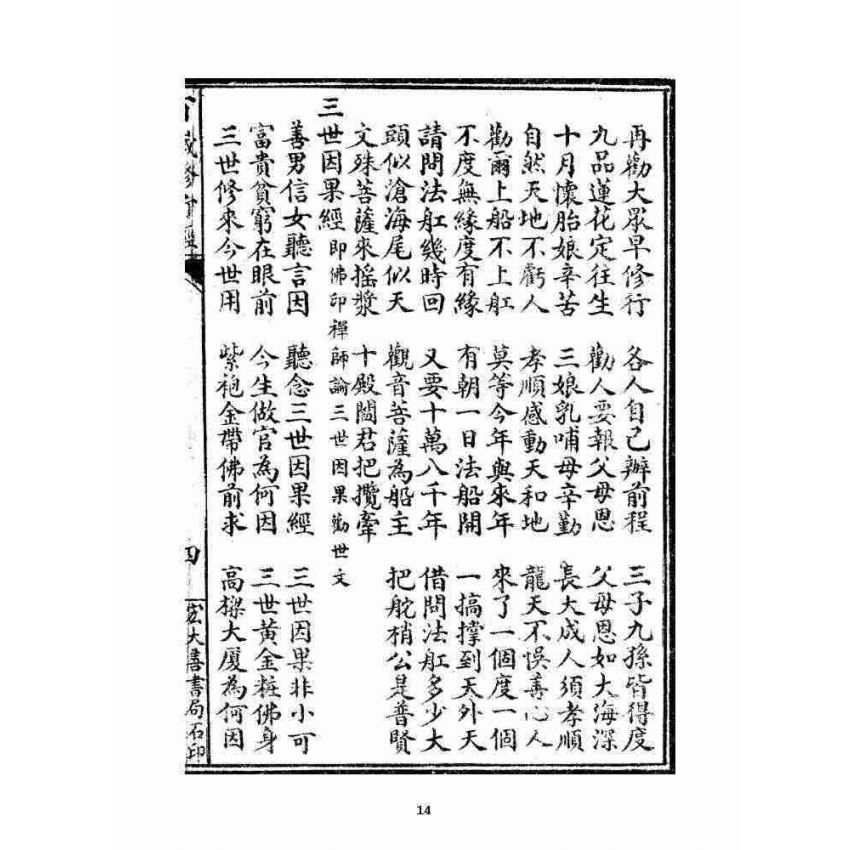 再勸大眾早修行 各人自己辦前程 三子九孫皆得度
九品蓮花定往生 勸人要報父母恩 父母恩如大海深
十月懷胎娘辛苦 三娘乳哺母辛勤 長大成人須孝順
自然天地不虧人 孝順感動天和地 龍天不悞善心人
勸爾上船不上舡 莫等今年與來年 來了一個度一個
不度無緣度有緣 有朝一日法船開 一撐到天外天
請問法舡幾時回 又要十萬八千年 借問法舡多少大
頭似滄海尾似天 觀音菩薩為船主 把舵梢公是普賢
文殊菩薩來摇槳 十殿閻君把攬牽
三世因果經 即佛印禪師論三世因果勸世文
善男信女聽言因 聽念三世因果經 三世因果非小可
富貴貧窮在眼前 今生做官為何因 三世黃金粧佛身
三世修來今世用 紫袍金帶佛前求 高樑大厦為何因
四
宏大善書局石印
14